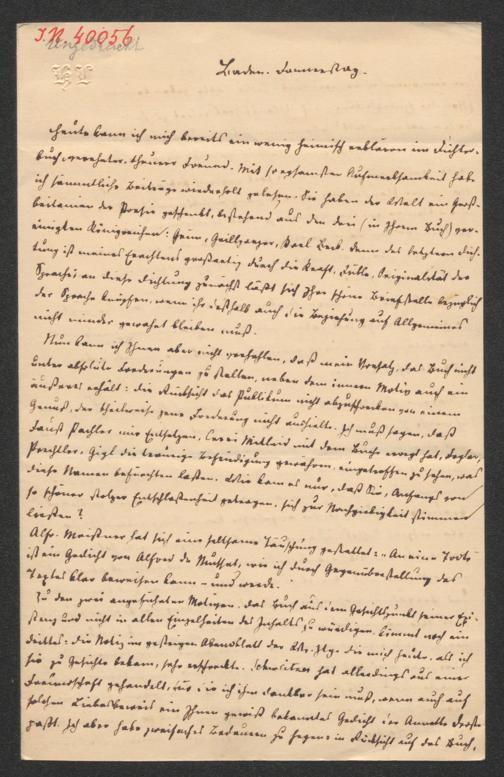 I.N. 40056
Ungedruckt
Baden. Donnerstag.
Heute kann ich mich bereits ein wenig heimisch erklären im Dichter-
buch, verehrter, theurer Freund. Mit sorgsamster Aufmerksamkeit habe
ich sämmtliche Beiträge wiederholt gelesen. Sie haben der Welt ein Groß-
britanien der Poesie geschenkt, bestehend aus den drei (in Ihrem Buch) ver-
einigten Königreichen: Grün, Grillparzer, Karl Beck. Denn des letztern Dich-
tung ist meines Erachtens großartig durch die Kraft, Fülle, Originalität der
Sprache; an diese Dichtung zunächst läßt sich Ihre schöne Briefstelle bezüglich
der Sprache knüpfen, wenn ihr deßhalb auch die Beziehung auf Allgemeines
nicht minder gewahrt bleiben muß.
Nun kann ich Ihnen aber nicht verhehlen, daß mein Vorsatz, das Buch nicht
unter absolute Forderungen zu stellen, neben dem innern Motiv auch ein
äußeres erhält: die Rücksicht das Publikum nicht abzuschrecken von einem
Genuß, der theilweise jene Forderung nicht aushielte. Ich muß sagen, daß
Faust Pachler mir Entsetzen, Cerri Mitleid mit dem Buche erregt hat, Foglar,
Prechtler, Gigl die traurige Befriedigung gewähren, eingetroffen zu sehen, was
diese Namen befürchten ließen. Wie kam es nur, daß Sie, Anfangs von
so schöner stolzer Entschlossenheit getragen, sich zur Nachgiebigkeit stimmen
ließen?
Alfr. Meißner hat sich eine seltsame Täuschung gestattet: "An eine Todte"
ist ein Gedicht von Alfred de Musset, wie ich durch Gegenüberstellung des
Textes klar beweisen kann – und werde.
Zu den zwei angeführten Motiven, das Buch aus dem Gesichtspunkt seiner Exi-
stenz und nicht in allen Einzelheiten des Inhalts zu würdigen, kommt noch ein
drittes: die Notiz im gestrigen Abendblatt der Ztg. die mich heute, als ich
sie zu Gesichte bekam, sehr erschreckte. hat allerdings aus einer
Freundschaft gehandelt, für die ich ihm dankbar sein muß, wenn auch auf
solchen Liebesbeweis ein Ihnen gewiß bekanntes Gedicht der Annette Droste
paßt. Ich aber habe zweifaches Bedauern zu hegen: in Rücksicht auf das Buch,